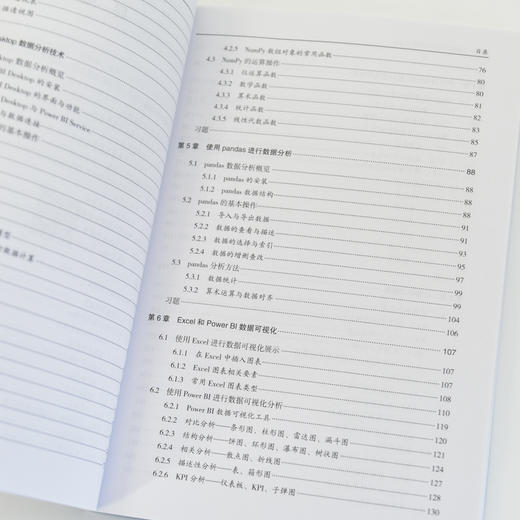 数据透视图
ktop 数据分析技术
Desktop 数据分析概览
Desktop 的安装
Desktop 的界面与功能
Desktop 与 Power BI Service
与数据连接
的基本操作
目录
4.2.5 NumPy 数组对象的常用函数 76
4.3 NumPy 的运算操作 80
4.3.1 位运算函数 80
4.3.2 数学函数 81
4.3.3 算术函数 82
4.3.4 统计函数 83
4.3.5 线性代数函数 85
习题 87
第 5 章 使用 pandas 进行数据分析 88
5.1 pandas 数据分析概览 88
5.1.1 pandas 的安装 88
5.1.2 pandas 数据结构 88
5.2 pandas 的基本操作 91
5.2.1 导入与导出数据 91
5.2.2 数据的查看与描述 93
5.2.3 数据的选择与索引 95
5.2.4 数据的增删查改 97
5.3 pandas 分析方法 99
5.3.1 数据统计 99
5.3.2 算术运算与数据对齐 104
习题 106
第 6 章 Excel 和 Power BI 数据可视化 107
6.1 使用 Excel 进行数据可视化展示 107
6.1.1 在 Excel 中插入图表 107
6.1.2 Excel 图表相关要素 108
6.1.3 常用 Excel 图表类型 110
6.2 使用 Power BI 进行数据可视化分析 119
6.2.1 Power BI 数据可视化工具 120
6.2.2 对比分析——条形图、柱形图、雷达图、漏斗图 121
6.2.3 结构分析——饼图、环形图、瀑布图、树状图 124
6.2.4 相关分析——散点图、折线图 127
6.2.5 描述性分析——表、箱形图 128
6.2.6 KPI 分析——仪表板、KPI、子弹图 130